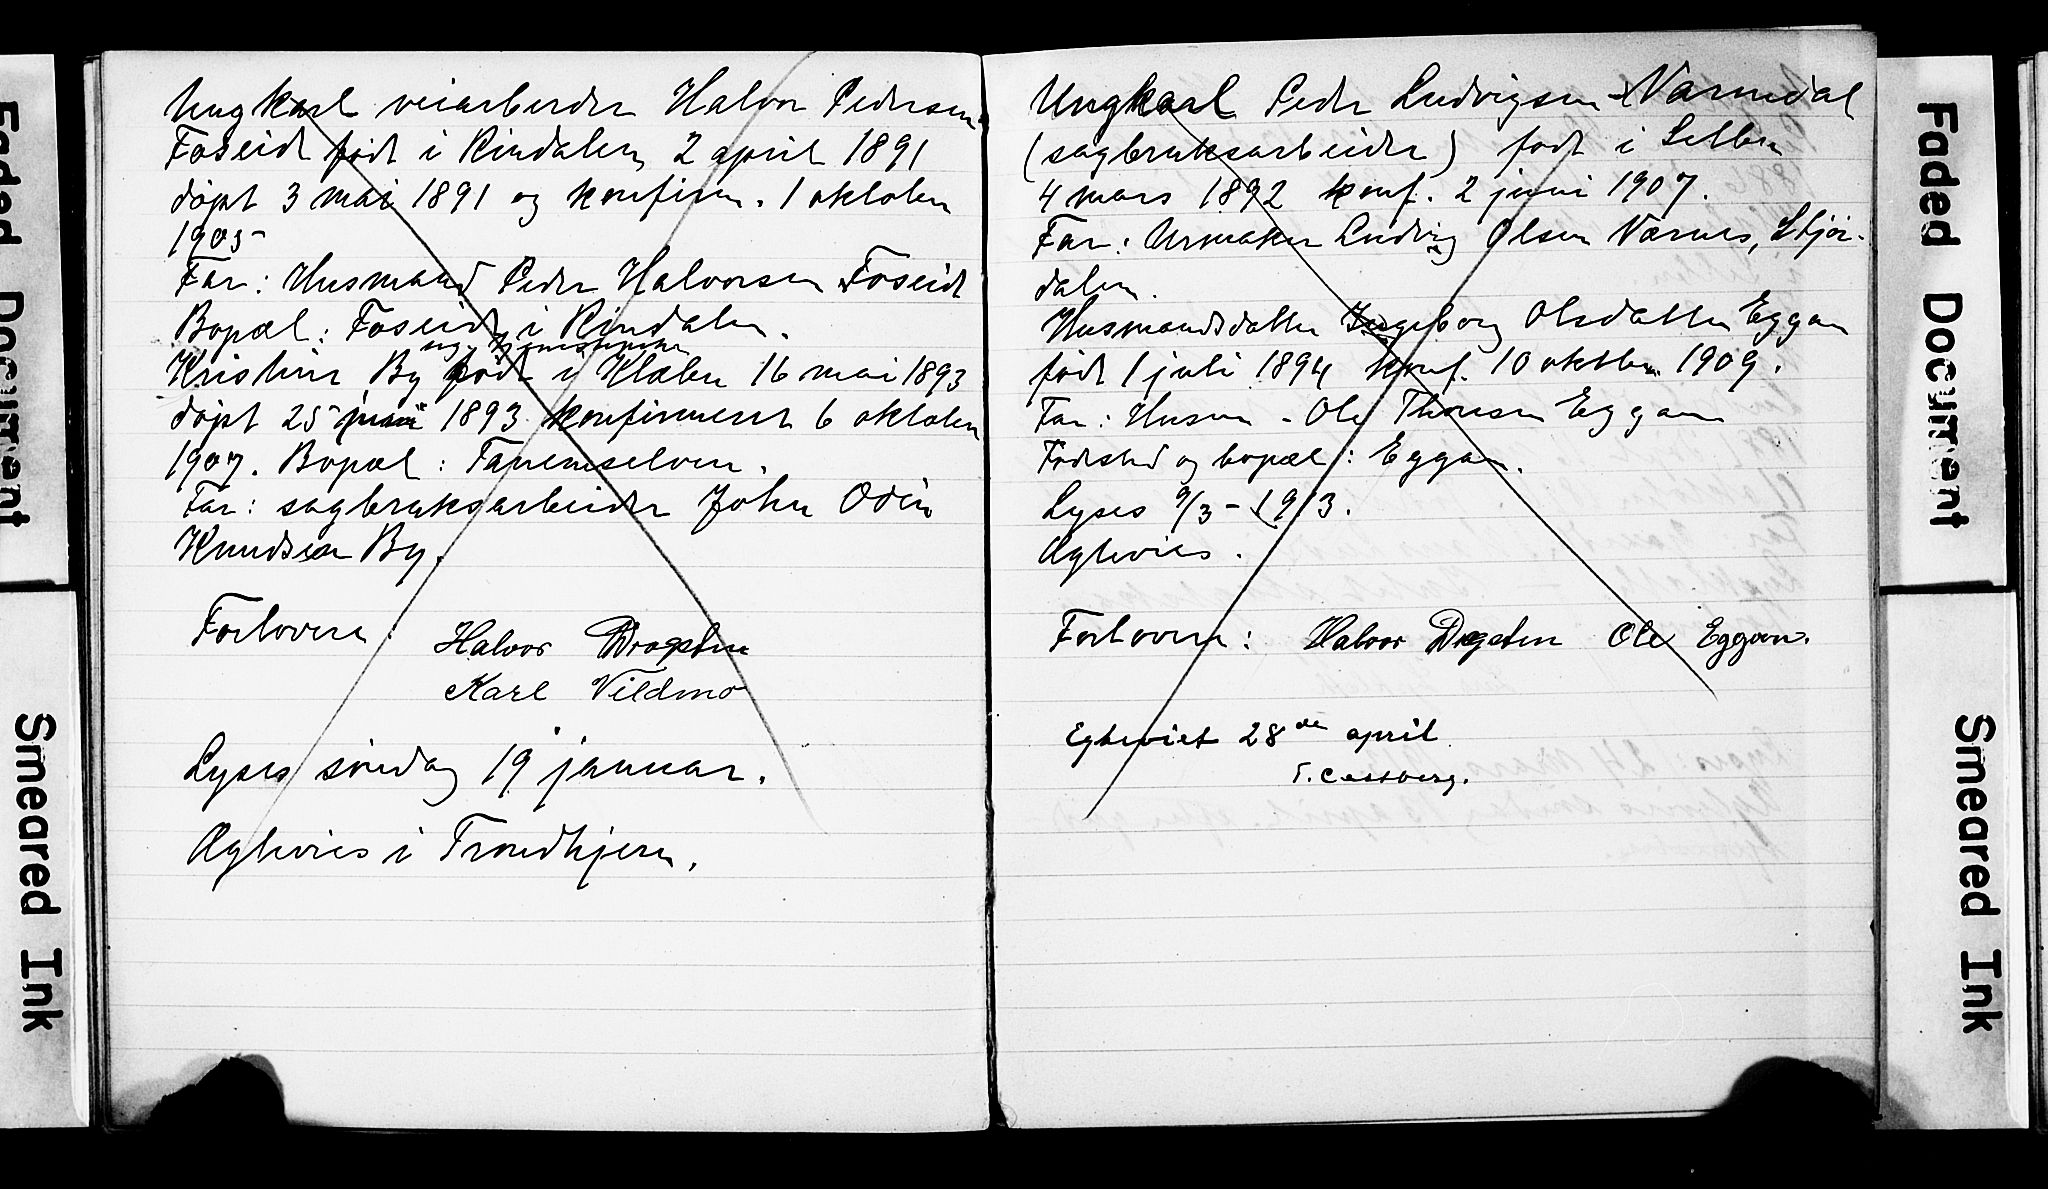 Ungkarl veiarbeider Halvor Pedersen
Foseid født i Rindalen 2 april 1891
døpt 3 mai 1891 og konfirm. 1 oktober
1905
Far: Husmand Peder Halvorsen Foseid
Bopæl: Foseid i Rindalen.
ug. hjemmeværende
Kristine By født i Klæbu 16 mai 1893
døpt 25 juni 1893 konfirmeret 6 oktober
1907. Bopæl: Tanemselven.
Far: sagbruksarbeider John Odin
Knudsen By.
Forlovere: Halvor Dragsten
Karl Vildmo
Lyses søndag 19 januar.
Ægtevies i Trondhjem.
Ungkarl Peder Ludvigsen Værnedal
(sagbruksarbeider) født i Selbu
4 mars 1892 konf. 2 juni 1907.
Far: Urmaker Ludvig Olsen Værnes, Stjør-
dalen.
Husmandsdatter Ingeborg Olsdatter Eggan
født 1 juli 1894 konf. 10 oktbr. 1909.
Far: Husm - Ole Thomsen Eggan
Fødested og bopæl: Eggan.
Lyses 9/3 - 1913.
Ægtevies.
Forlovere: Halvor Dragsten Ole Eggan.
Egteviet 28de april
T. Castberg.
Faded Document
Smeared Ink
Faded Document
Smeared Ink